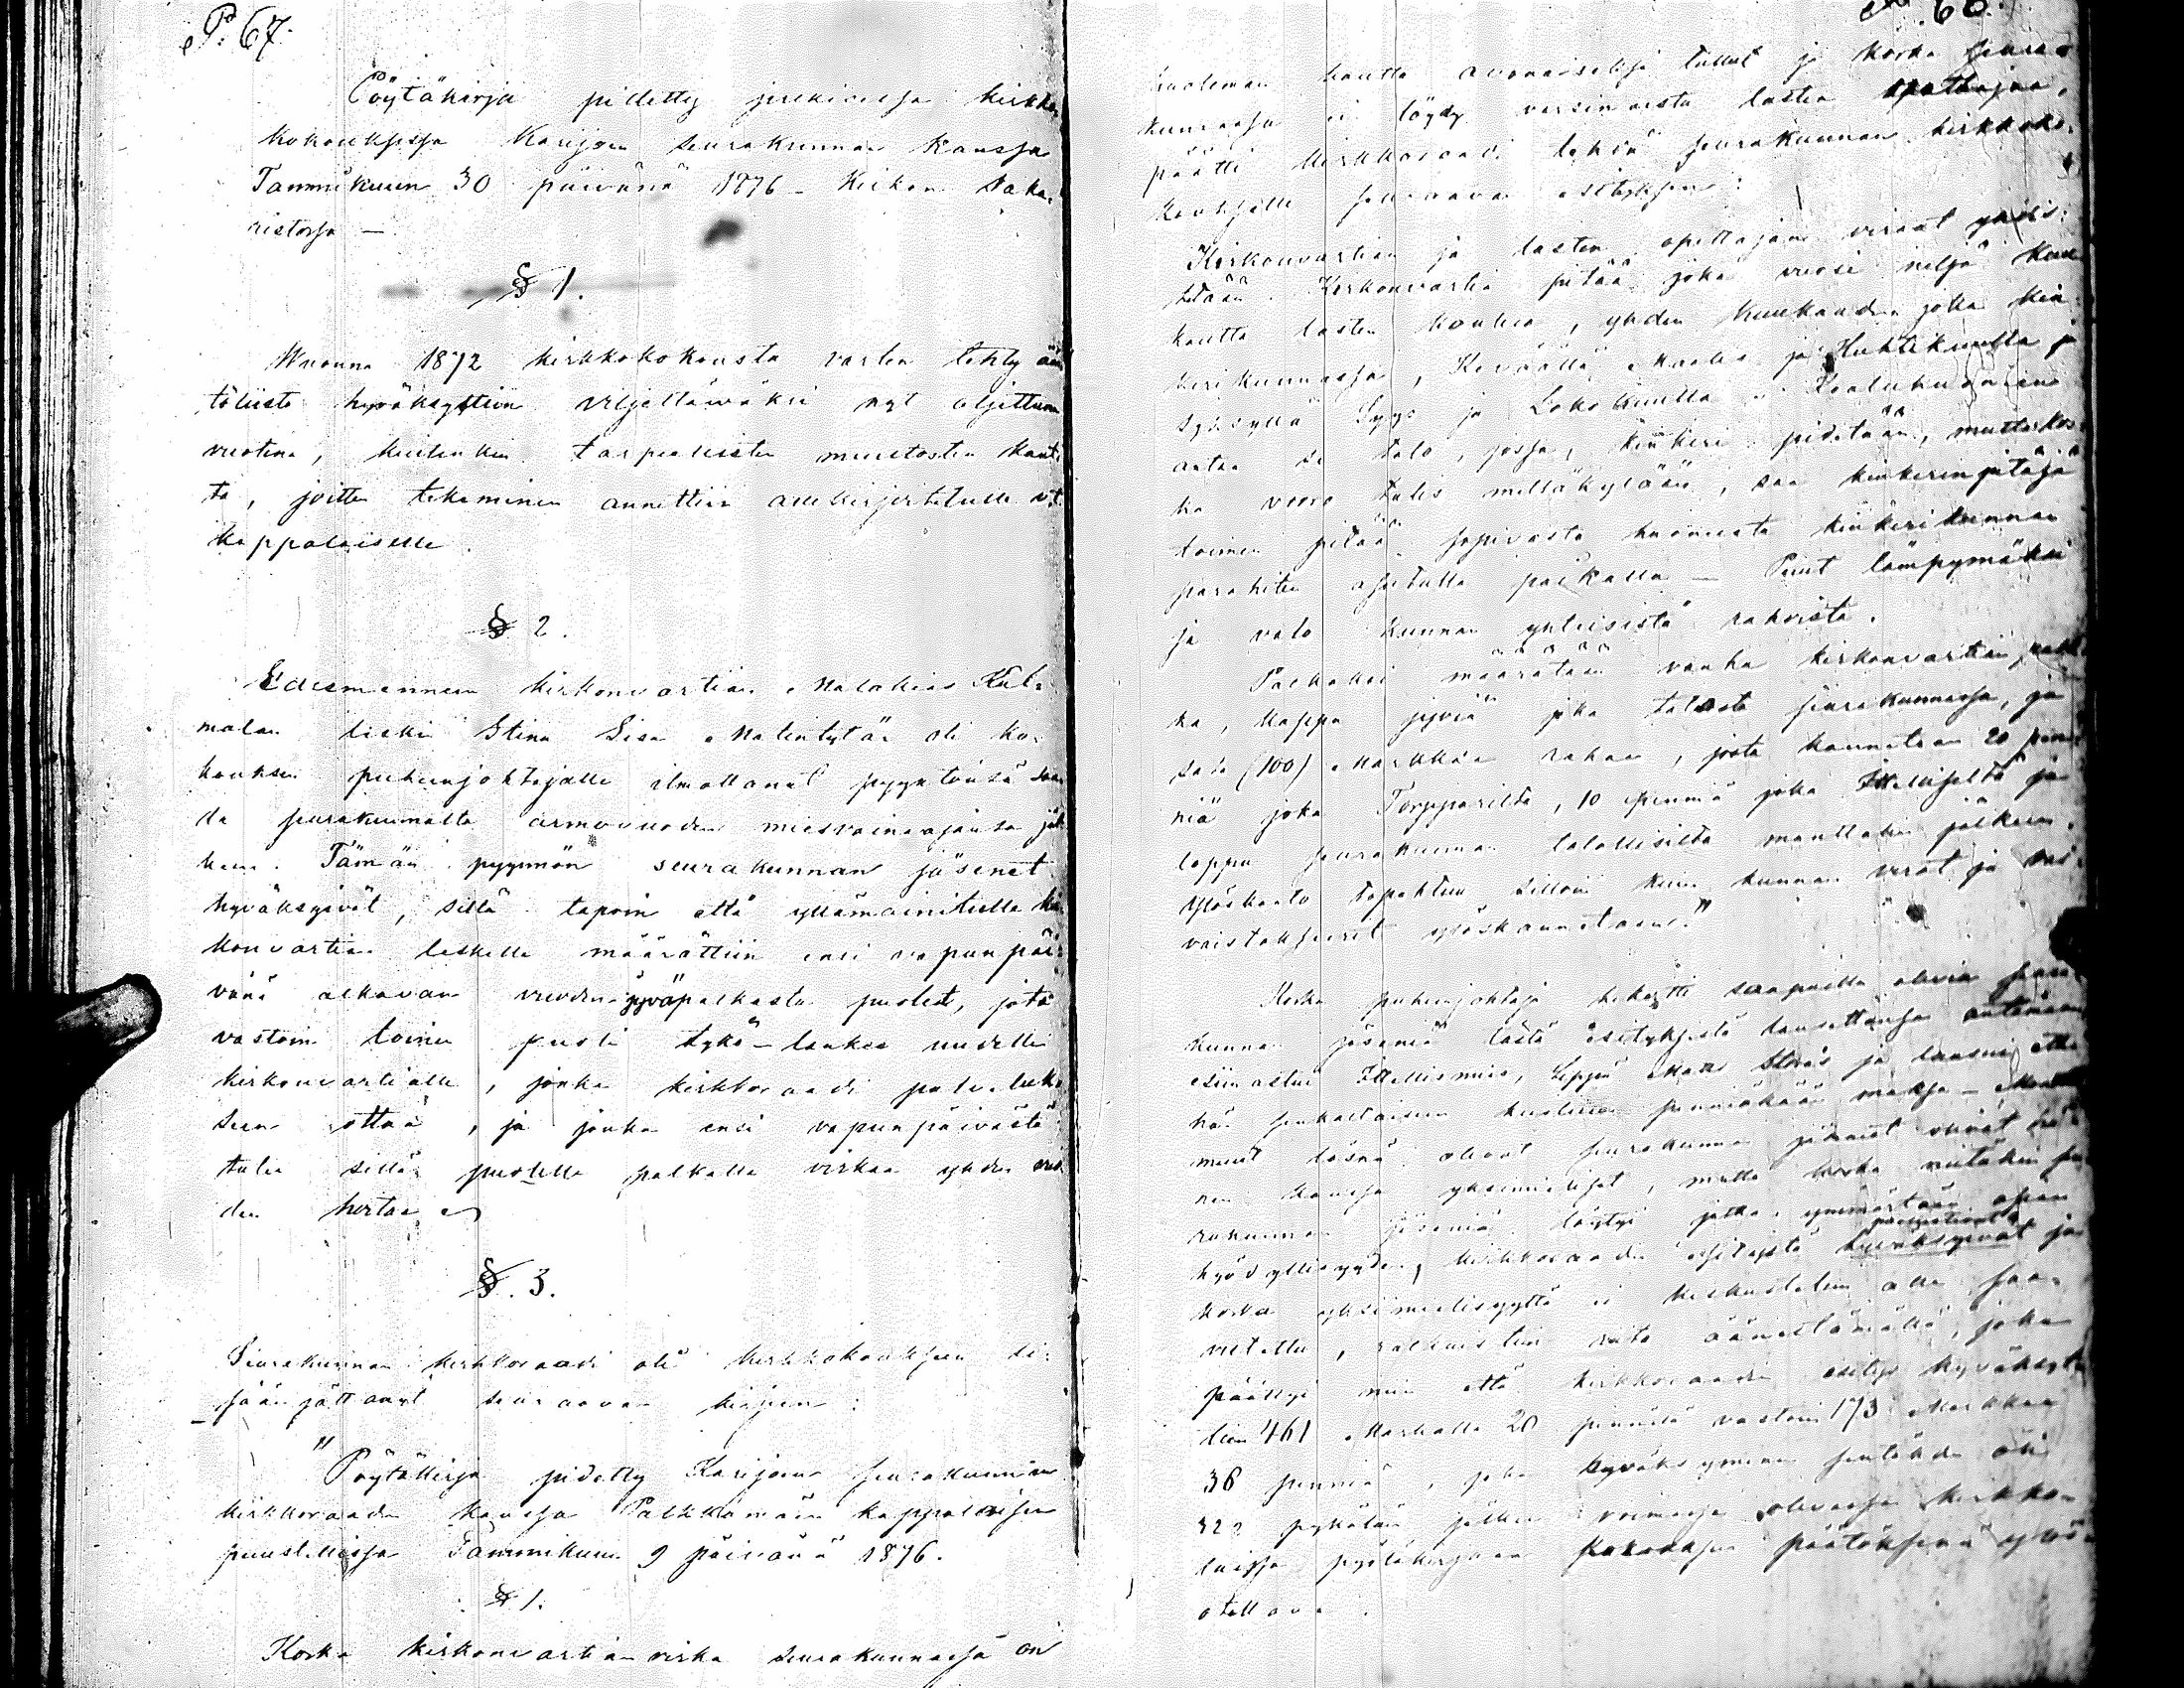 P. 67.
Pöytäkirja pidetty julkisessa kirkko-
kokouksessa Karijoen seurakunnan kanssa
Tammikuun 30 päivänä 1876 – Kirkon saka-
ristossa –
§ 1.
Wuonna 1872 kirkkokokousta varten tehty ään
töluista hyväksyttiin viljeltäwäksi nyt aljettuna
vuotena, kuitenkin tarpeellisten muutosten kaut-
ta, joitten tekeminen annettiin allekirjoitetulle v.t.
kappalaiselle.
§ 2.
Edesmenneen kirkonvartian Malakias Kul-
malan leski Stina Lisa Matintytär oli ko-
kouksen puheenjohtajalle ilmottanut pyyntönsä saa-
da seurakunnalta armovuoden miesvainaajansa jäl
keen. Tämän pyynnön seurakunnan jäsenet
hyväksyivät, sillä tapoin että yllämainitulle kir
konvartian leskelle määrättiin ensi vapunpäi-
vänä alkavan vuoden jyväpalkasta puolet, jota
vastoin toinen puoli tykö-lankee uudelle
kirkonvartialle, jonka kirkkoraadi palveluk-
seen ottaa, ja jonka ensi vapunpäivästä
tulee sillä puolella palkalla virkaa yhden vuo
den hoitaa
§. 3.
Seurakunnan kirkkoraadi oli kirkkokoukseen si-
sään jättänyt seuraavan kirjeen:
"Pöytäkirja pidetty Karijoen seurakunnan
kirkkoraadin kanssa Palkkamäen kappalaisen
puustellissa Tammikuun 9 päivänä 1876.
§ 1.
Koska kirkonvartian virka seurakunnassa on
68.
kuoleman kautta avonaiseksi tullut ja koska seura-
kunnassa ei löydy varsinaista lasten opettajaa,
päätti kirkkoraadi tehdä seurakunnan kirkkoko-
koukselle seuraavan esityksen:
Kirkonvartian ja lasten opettajan virkat yhdis-
tetään. Kirkonvartia pitää joka vuosi neljä kuu
kautta lasten koulua, yhden kuukauden joka kin
kerikunnassa, Keväällä Maalis ja Huhtikuulla ja
syksyllä Syys ja Lokakuulla. Kouluhuoneen
antaa se talo, jossa kinkeri pidetään, mutta kos-
ka vuoro tulis milläkylään, saa kinkerinpitäjä
toimen pitää sopivasta huoneesta kinkerikunnan
parahiten asetulla paikalla – Puut lämpymäksi
ja valo kunnan yhteisistä rahoista.
Palkaksi määrätään vanha kirkonvartian palk
ka, kappa jyviä joka talosta seurakunnassa, ja
sata (100) Markkaa rahaa, josta kannetaan 20 pen-
niä joka Torpparilta, 10 penniä joka Itelliseltä ja
loppu seurakunnan talollisilta manttalin jälkeen.
Ylöskanto tapahtuu silloin kuin kunnan verot ja vai-
vaistakseerit ylöskannetaan."
Koska puheenjohtaja kehotti saapuilla olevia seura
kunnan jäseniä tästä esityksestä lausettansa antamaan
esiin astui Itellismies, Seppä Matts Storås ja lausui ettei
hän senkaltaiseen kouluun penniäkään maksa –
muut läsnä olevat seurakunnan jäsenet olivat hä-
nen kanssa yksimieliset, mutta koska niitäkin seu-
rakunnan jäseniä löytyi jotka, ymmärtäen asian
hyödyllisyyden, kirkkoraadin esitystä puollustivat ja
koska yksimielisyyttä ei keskustelun alla saa-
vutettu, ratkaistiin riita äänestämällä, joka
päättyi niin että kirkkoraadin esitys hyväksyt-
tiin 461 Markalla 20 penniä vastoin 173 Markkaa
36 penniä, joka hyväksyminen sentähden on
32 pykälän jälkeen voimassa olevassa kirkko-
laissa pöytäkirjaan kokouksen päätöksenä ylös-
otettava.